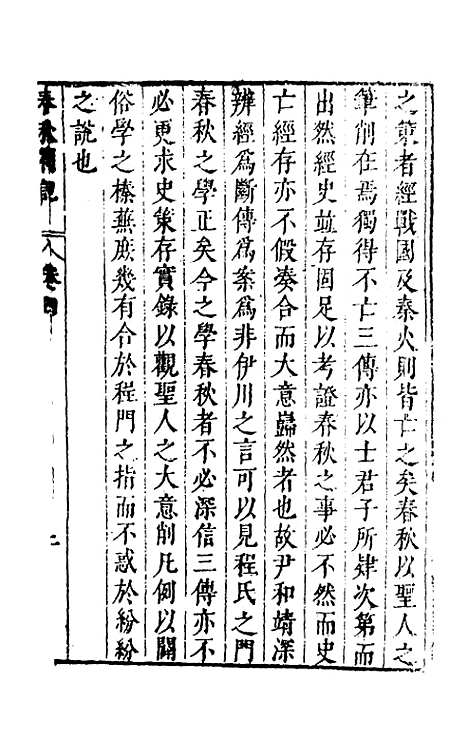 之策者經戰國及秦火則皆亡之矣春秋以聖人之
筆削在焉獨得不亡三傳亦以士君子所肄次第而
出然經史並存固足以考證春秋之事必不然而史
亡經存亦不假湊合而大意巋然者也故尹和靖深
辨經為斷傳為案為非伊川之言可以見程氏之門
春秋之學正矣今之學春秋者不必深信三傳亦不
必更求史策存實錄以觀聖人之大意削凡例以闢
俗學之榛蕪庶幾有合於程門之指而不惑於紛紛
之說也
春秋 記 卷四